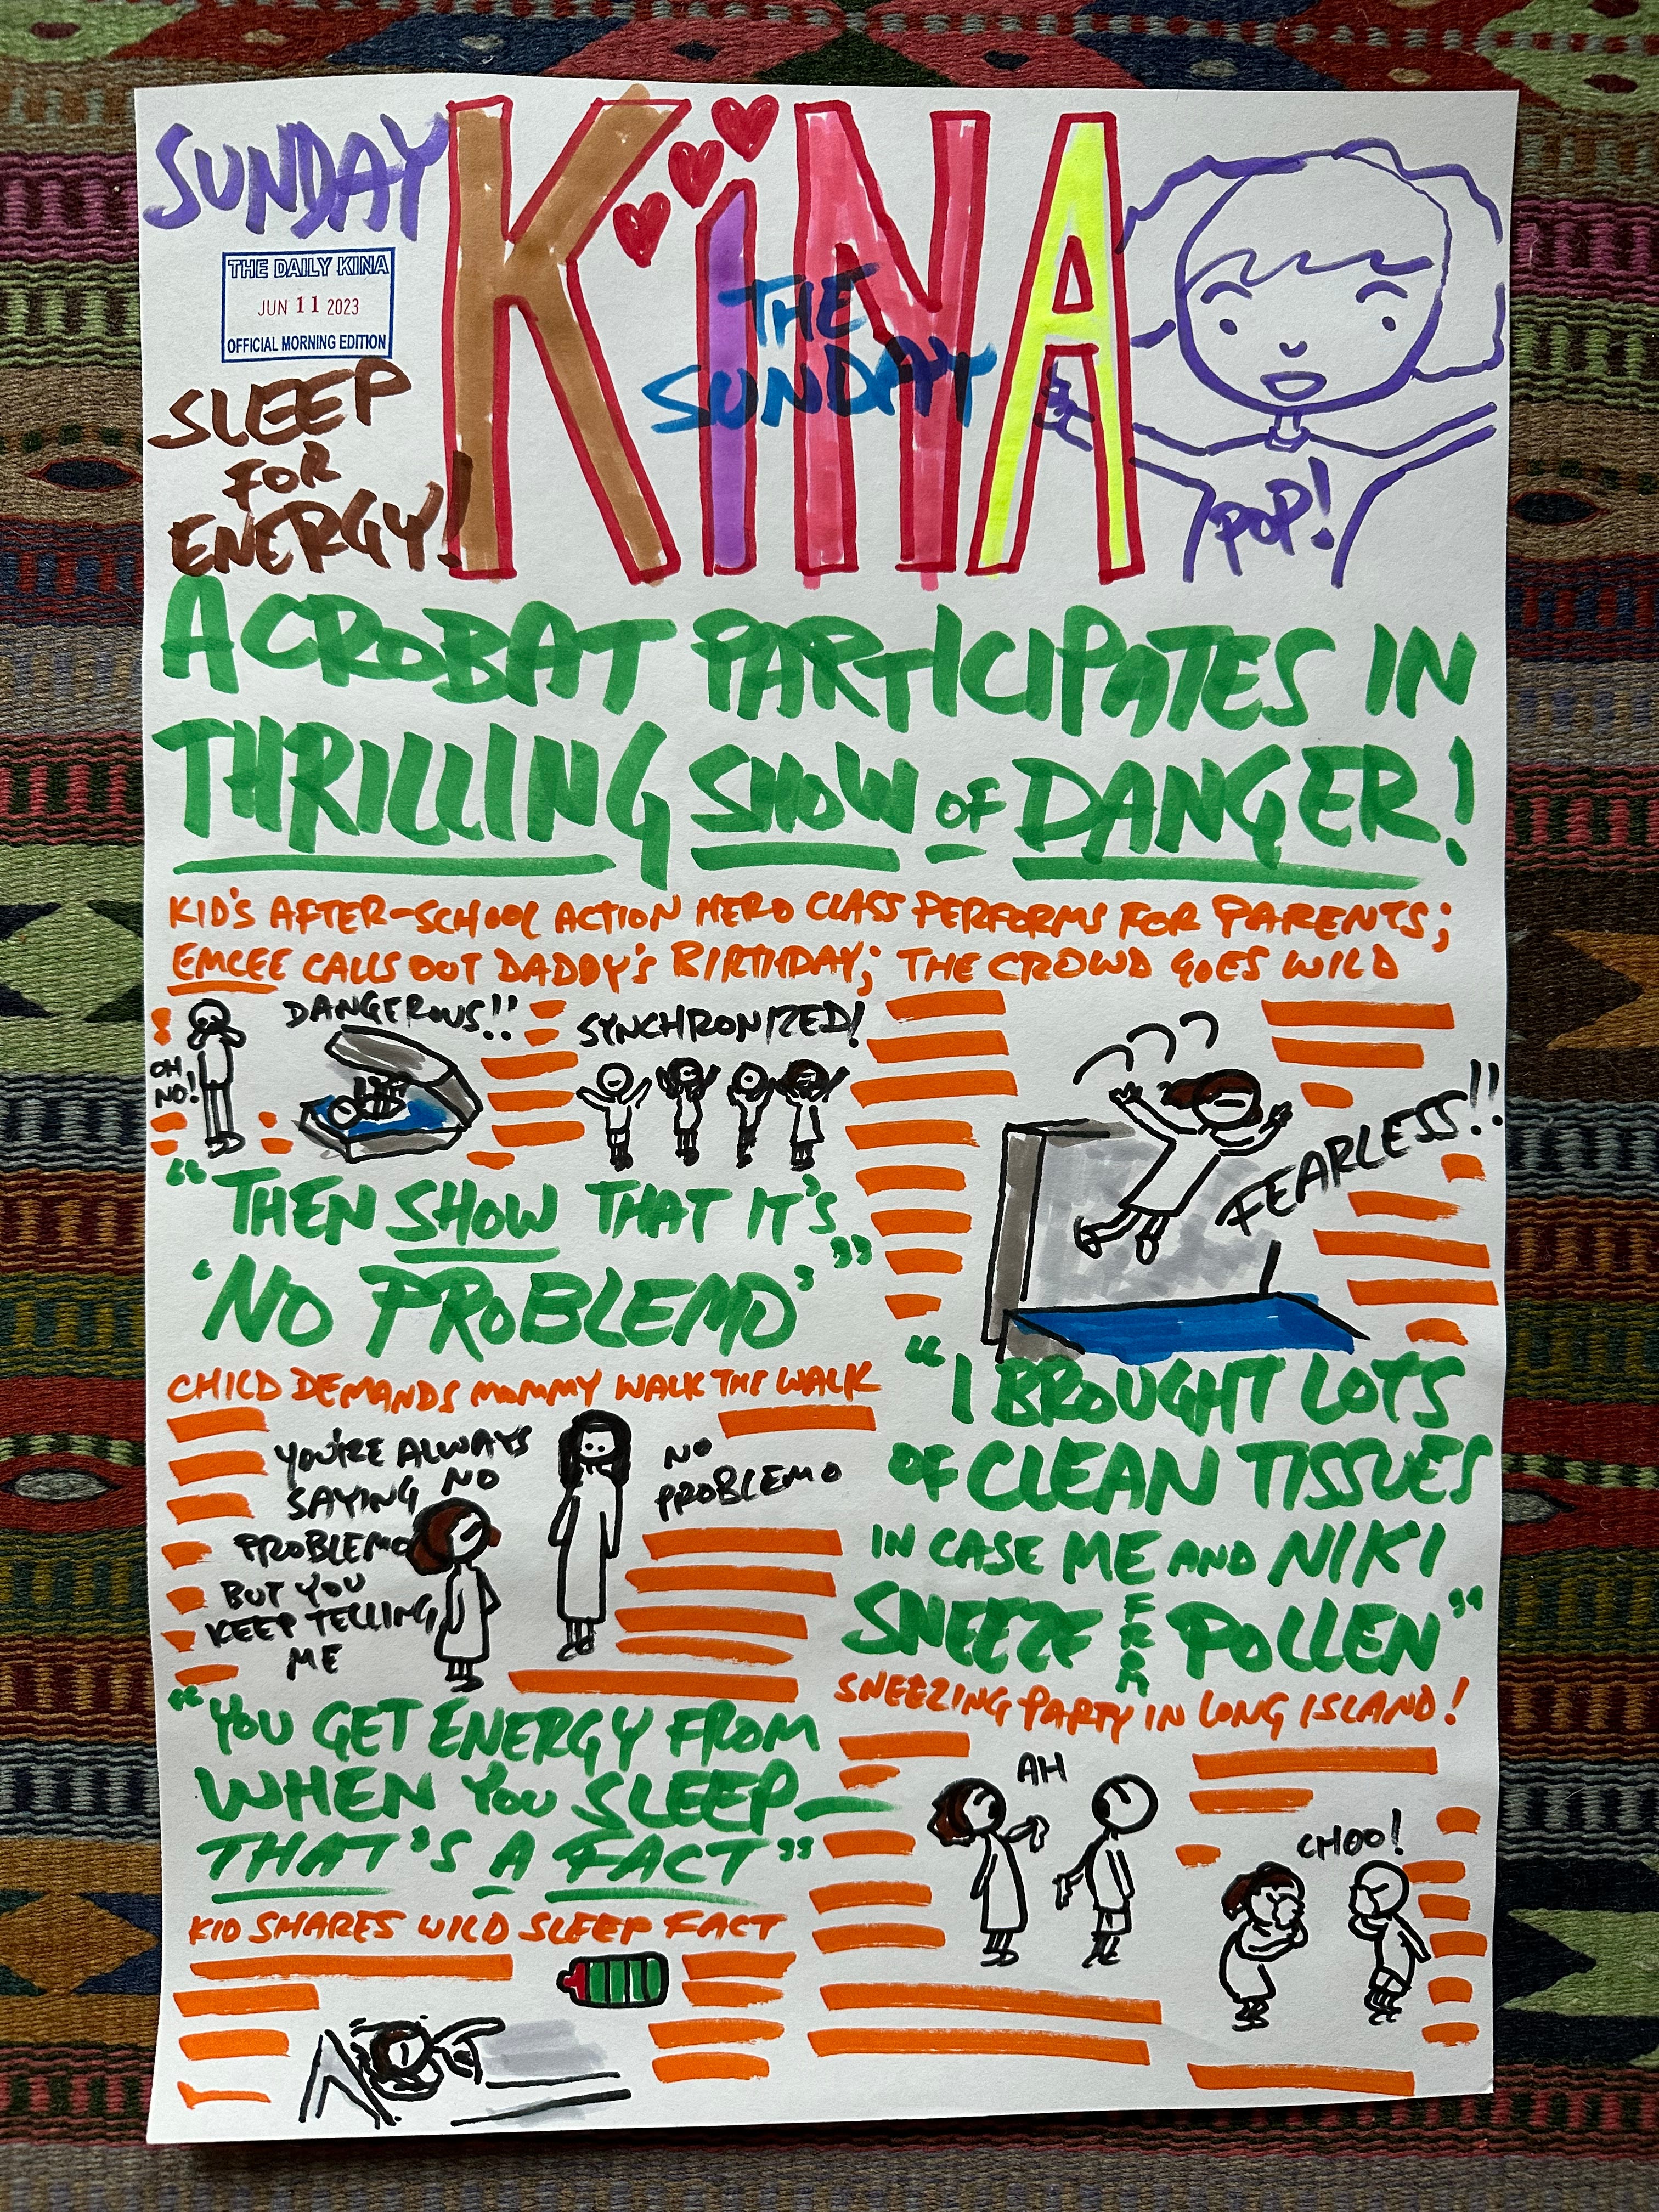 SUNDAY
KiNA
THE DAILY KINA
JUN 11 2023
OFFICIAL MORNING EDITION
THE
SUNDAY
SLEEP
FOR
ENERGY!
POP!
ACROBAT PARTICIPATES IN
THRILLING SHOW OF DANGER!
KID'S AFTER-SCHOOL ACTION HERO CLASS PERFORMS FOR PARENTS;
EMCEE CALLS OUT DADDY'S BIRTHDAY; THE CROWD GOES WILD
OH,
NO!
DANGEROUS!!
SYNCHRONIZED!
FEARLESS!!
"THEN SHOW THAT IT'S
'NO PROBLEMO'"
CHILD DEMANDS MOMMY WALK THE WALK
YOU'RE ALWAYS
SAYING NO
PROBLEMO
BUT YOU
KEEP TELLING
ME
NO
PROBLEMO
"I BROUGHT LOTS
OF CLEAN TISSUES
IN CASE ME AND NIKI
SNEEZE FROM POLLEN"
SNEEZING PARTY IN LONG ISLAND!
AH
CHOO!
"YOU GET ENERGY FROM
WHEN YOU SLEEP—
THAT'S A FACT"
KID SHARES WILD SLEEP FACT